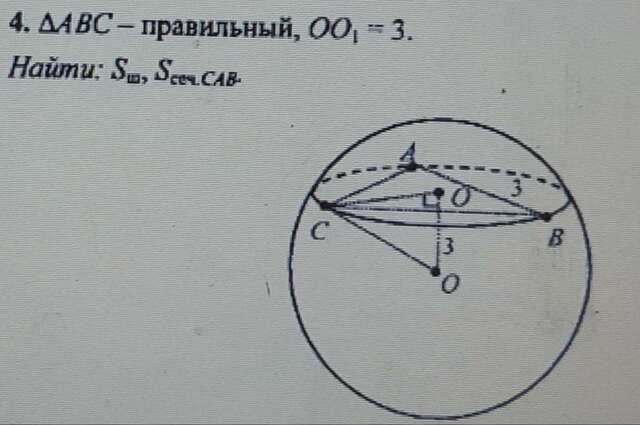 4. ΔABC – правильный, OO₁ = 3.
Найти: Sш, Sсеч.CAB.
A
3
O
C
B
3
O